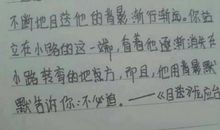 不断地目送他的背影渐行渐远。你站
立在小路的这一端，看着他逐渐消失在
小路转弯的地方，而且，他用背影默
默告诉你：不必追。——《目送》龙应台